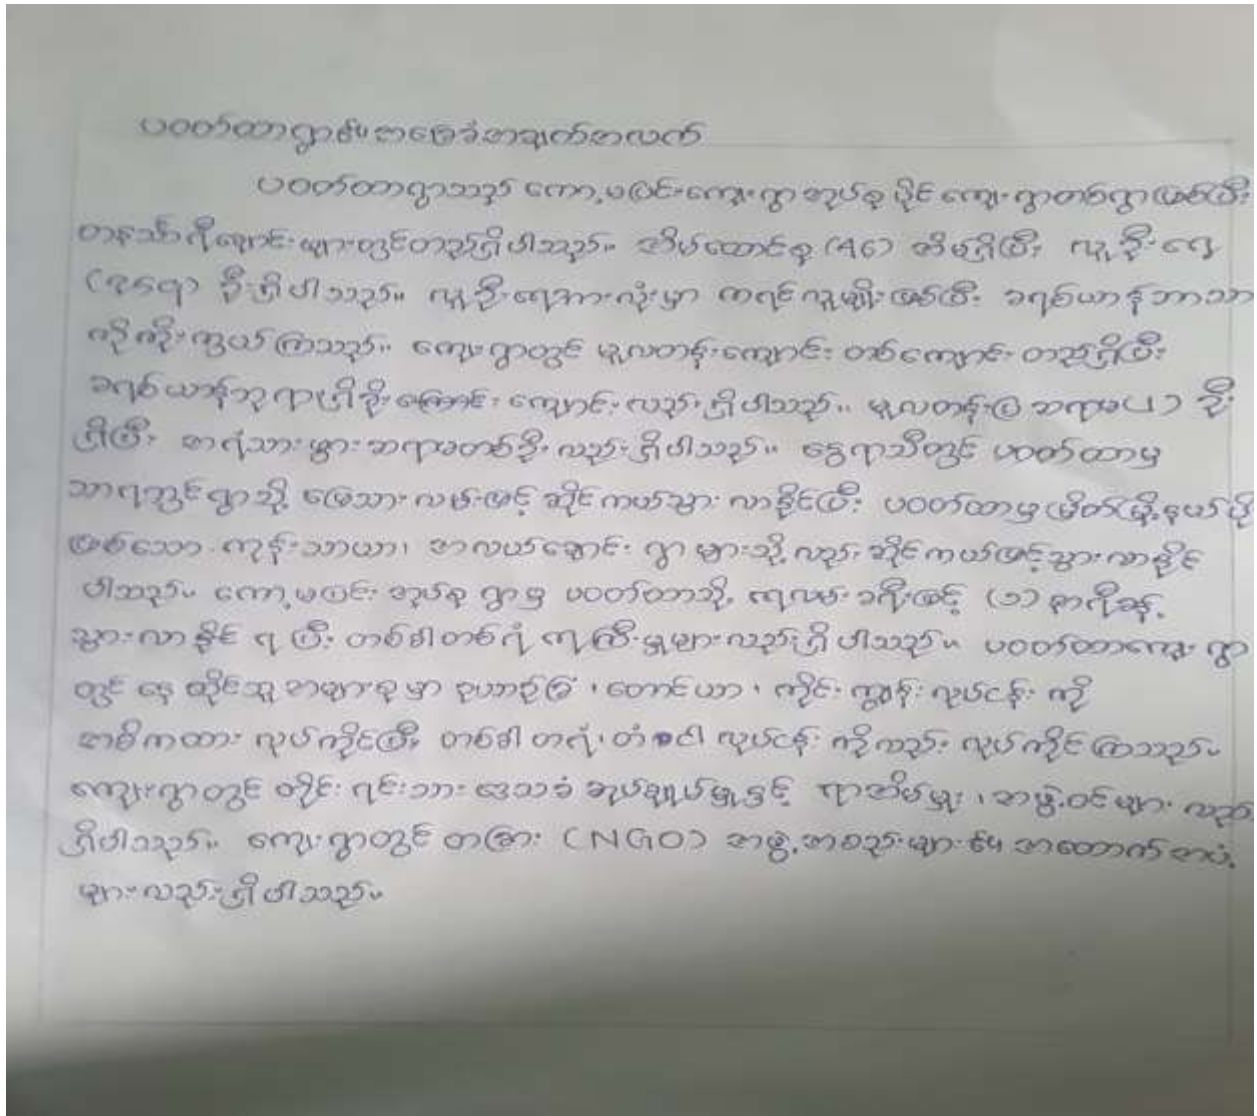 ပဝတ်ထာရွာ၏ အခြေခံအချက်အလက်
ပဝတ်ထာရွာသည် ကော့မပြင်းကျေးရွာအုပ်စု ပိုင် ကျေးရွာတစ်ရွာဖြစ်ပြီး
တနင်္သာရီချောင်းဖျားတွင်တည်ရှိပါသည်။ အိမ်ထောင်စု (46) အိမ်ရှိပြီး လူဦးရေ
ဦးရှိပါသည်။ လူဦးရေအားလုံးမှာ ကရင်လူမျိုးဖြစ်ပြီး ခရစ်ယာန်ဘာသာ
ကိုကိုးကွယ်ကြသည်။ ကျေးရွာတွင် မူလတန်းကျောင်း တစ်ကျောင်း တည်ရှိပြီး
ခရစ်ယာန်ဘုရားရှိခိုးကြောင်း ကျောင်းလည်းရှိပါသည်။ မူလတန်းပြ ဆရာမ ဦး
ရှိပြီး အရံသားဖွားဆရာမတစ်ဦးလည်းရှိပါသည်။ နွေရာသီတွင် ပဝတ်ထာမှ
သာရဘွင်ရွာသို့ မြေသားလမ်းဖြင့် ဆိုင်ကယ်သွားလာနိုင်ပြီး ပဝတ်ထာမှ မြိတ်မြို့နယ်ပို
ဖြစ်သော ကုန်းသာယာ၊ အလယ်ချောင်း ရွာများသို့လည်း ဆိုင်ကယ်ဖြင့်သွားလာနိုင်
ပါသည်။ ကော့မပြင်း အုပ်စု ရွာမှ ပဝတ်ထာသို့ ရေလမ်းခရီးဖြင့် (၁) နာရီခန့်
သွားလာနိုင် ရပြီး တစ်ခါတစ်ရံ ရေကြီးမှုများလည်းရှိပါသည်။ ပဝတ်ထာကျေးရွာ
တွင် နေထိုင်သူ အများစုမှာ ဥယျာဉ်ခြံ၊ တောင်ယာ၊ ကိုင်းကျွန်းလုပ်ငန်း ကို
အဓိကထား လုပ်ကိုင်ပြီး တစ်ခါတရံ၊ တံငါ လုပ်ငန်းကိုလည်း လုပ်ကိုင်ကြသည်။
ကျေးရွာတွင် တိုင်းရင်းသား ဒေသခံ အုပ်ချုပ်မှုနှင့် ရာအိမ်မှူး၊ အဖွဲ့ဝင်များ လည်း
ရှိပါသည်။ ကျေးရွာတွင် တခြား (NGO) အဖွဲ့အစည်းများ၏ အထောက်အပံ့
များလည်းရှိပါသည်။